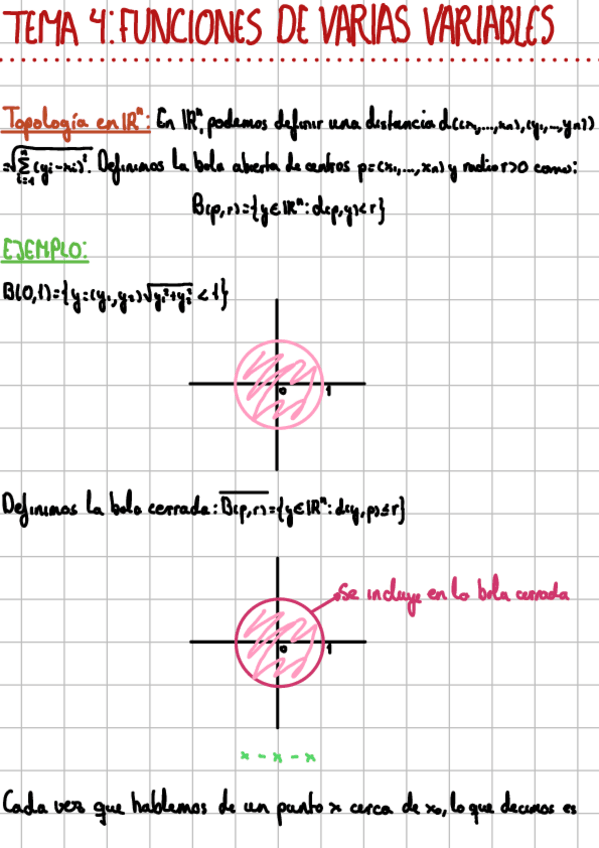 TEMA 4: FUNCIONES DE VARIAS VARIABLES
Topología en ℝⁿ: En ℝⁿ, podemos definir una distancia d((x₁,...,xₙ),(y₁,...,yₙ))
=√(∑ⁿᵢ₌₁(yᵢ-xᵢ)². Definimos la bola abierta de centros p=(x₁,...,xₙ) y radio r>0 como:
B(p,r)={y∈ℝⁿ: d(p,y)<r}
EJEMPLO:
B(0,1)={y=(y₁,y₂)√y₁²+y₂² <1}
0 1
Definimos la bola cerrada: B̅(̅p̅,̅r̅)̅={y∈ℝⁿ: d(y,p)≤r}
se incluye en la bola cerrada
0 1
x - x - x
Cada vez que hablemos de un punto x cerca de x₀, lo que decimos es